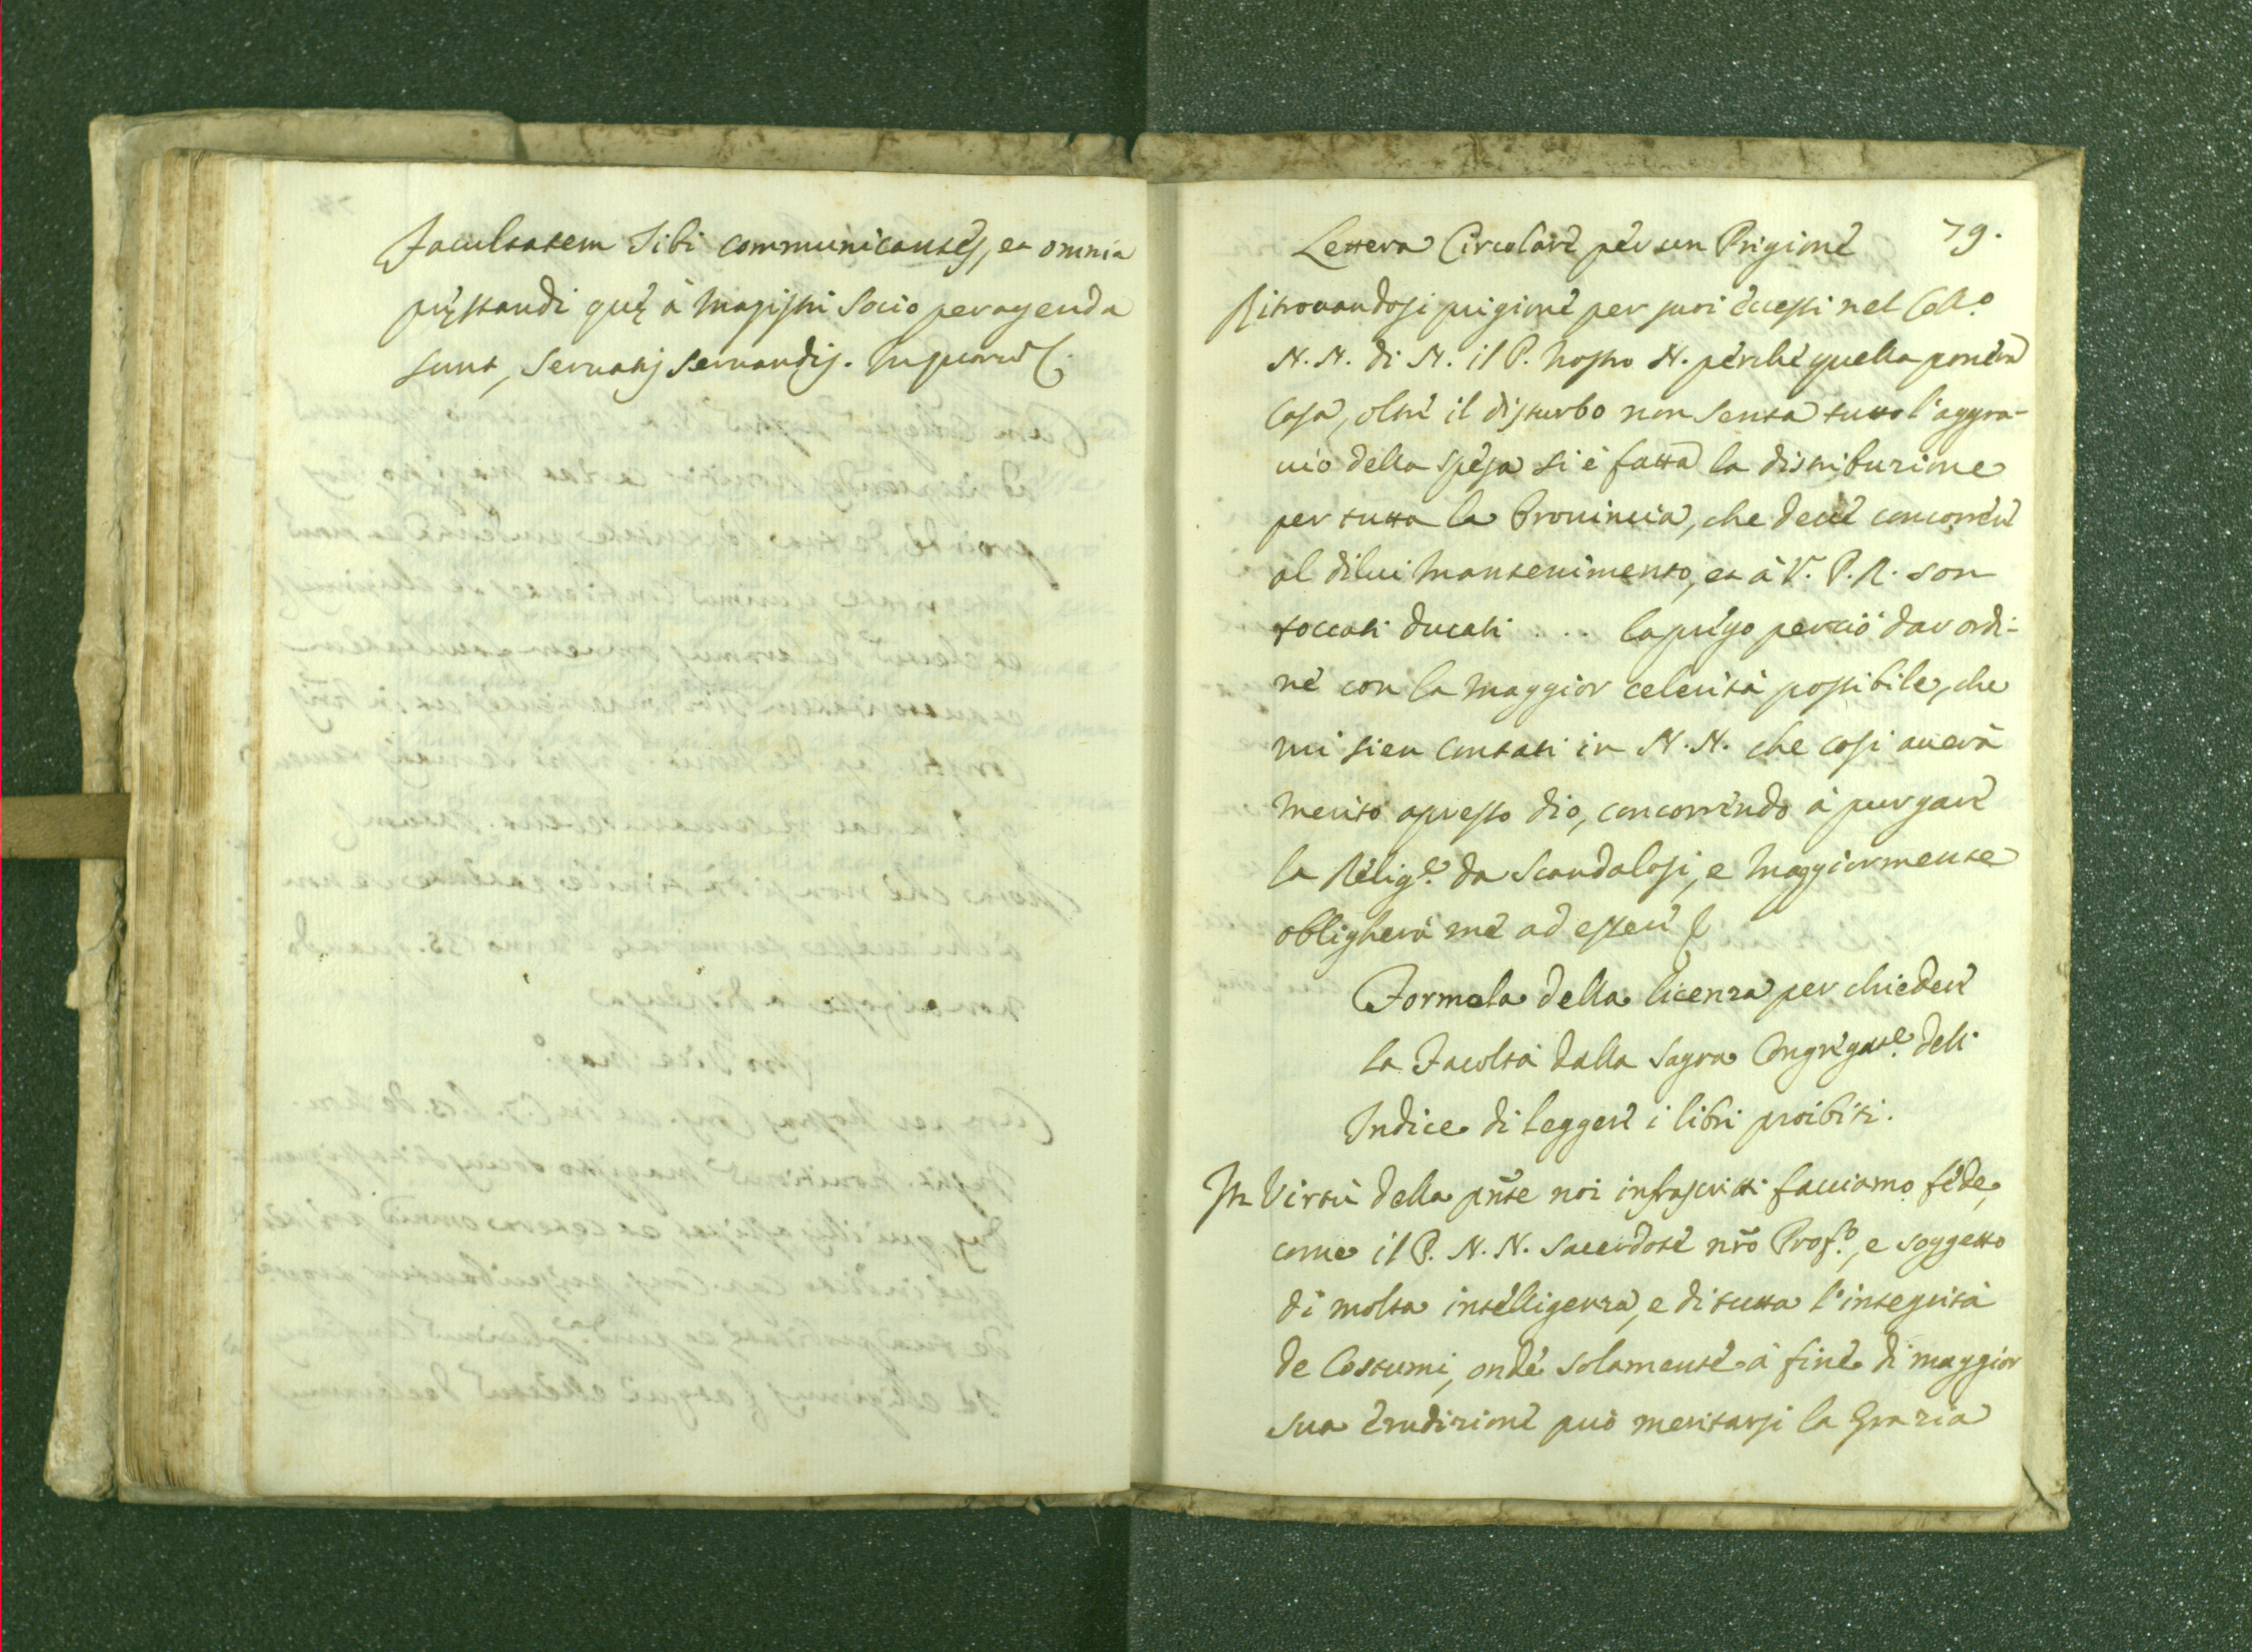 Facultatem Tibi communicantes, et omnia
pręstandi quę à Magistri Socio peragenda
sunt, servatis servandis. In quorum
79.
Lettera Circolare per un Prigione
Ritrovandosi prigione per suoi eccessi nel Coll.o
N. N. di N. il P. Nostro N. perche quella povera
Casa, oltre il disturbo non senta tutto l'aggra-
vio della spesa si è fatta la distribuzione
per tutta la Provincia, che deve concorrere
al dilui mantenimento, et à V. P. R. son
toccati ducati . . . La prego perciò dar ordi-
ne con la maggior celerità possibile, che
mi sien contati in N. N. che così averà
merito apresso dio, concorrendo à purgare
la Relig.e da Scandalosi, e maggiormente
obligherà me ad essere
Formola della licenza per chiedere
la Facoltà dalla Sagra Congregat.e deli
Indice di leggere i libri proibiti.
In Virtù della pñte noi infrascritti facciamo fede,
come il P. N. N. Sacerdote nr̃o Prof.o, e soggetto
di molta intelligenza, e di tutta l'integrità
de Costumi, onde solamente à fine di maggior
sua erudizione può meritarsi la Grazia